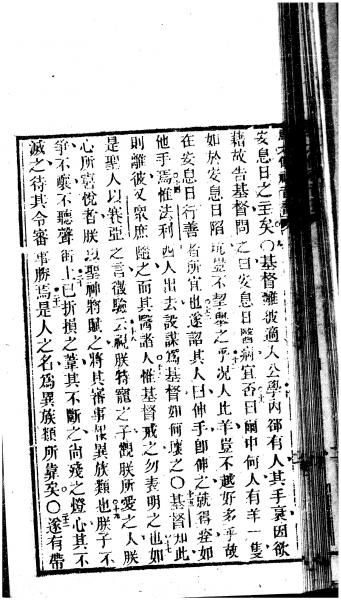 安息日之主矣〇基督離彼適入公學內卻有人其手衰因欲
藉故告基督問之曰安息日醫病宜否曰爾中何人有羊一隻
如於安息日陷坑豈不舉之乎況人比羊豈不越好多乎故
在安息日行善者所宜也遂詔其人曰伸手卽伸之就得痊如
他手焉惟法利西人出去設謀爲基督如何壞之〇基督知此
則離彼又衆庶隨之而其醫諸人惟基督戒之勿表明之也如
是聖人以賽亞之言徵驗云視朕特寵之子觀朕所愛之人朕
心所喜悅者朕以聖神將賦之將其審事報異族類也朕子不
爭不嚷不聽聲街上已折損之葦其不斷之尚殘之燈心其不
滅之待其令審事勝焉是人之名爲異族類所靠矣〇遂有帶